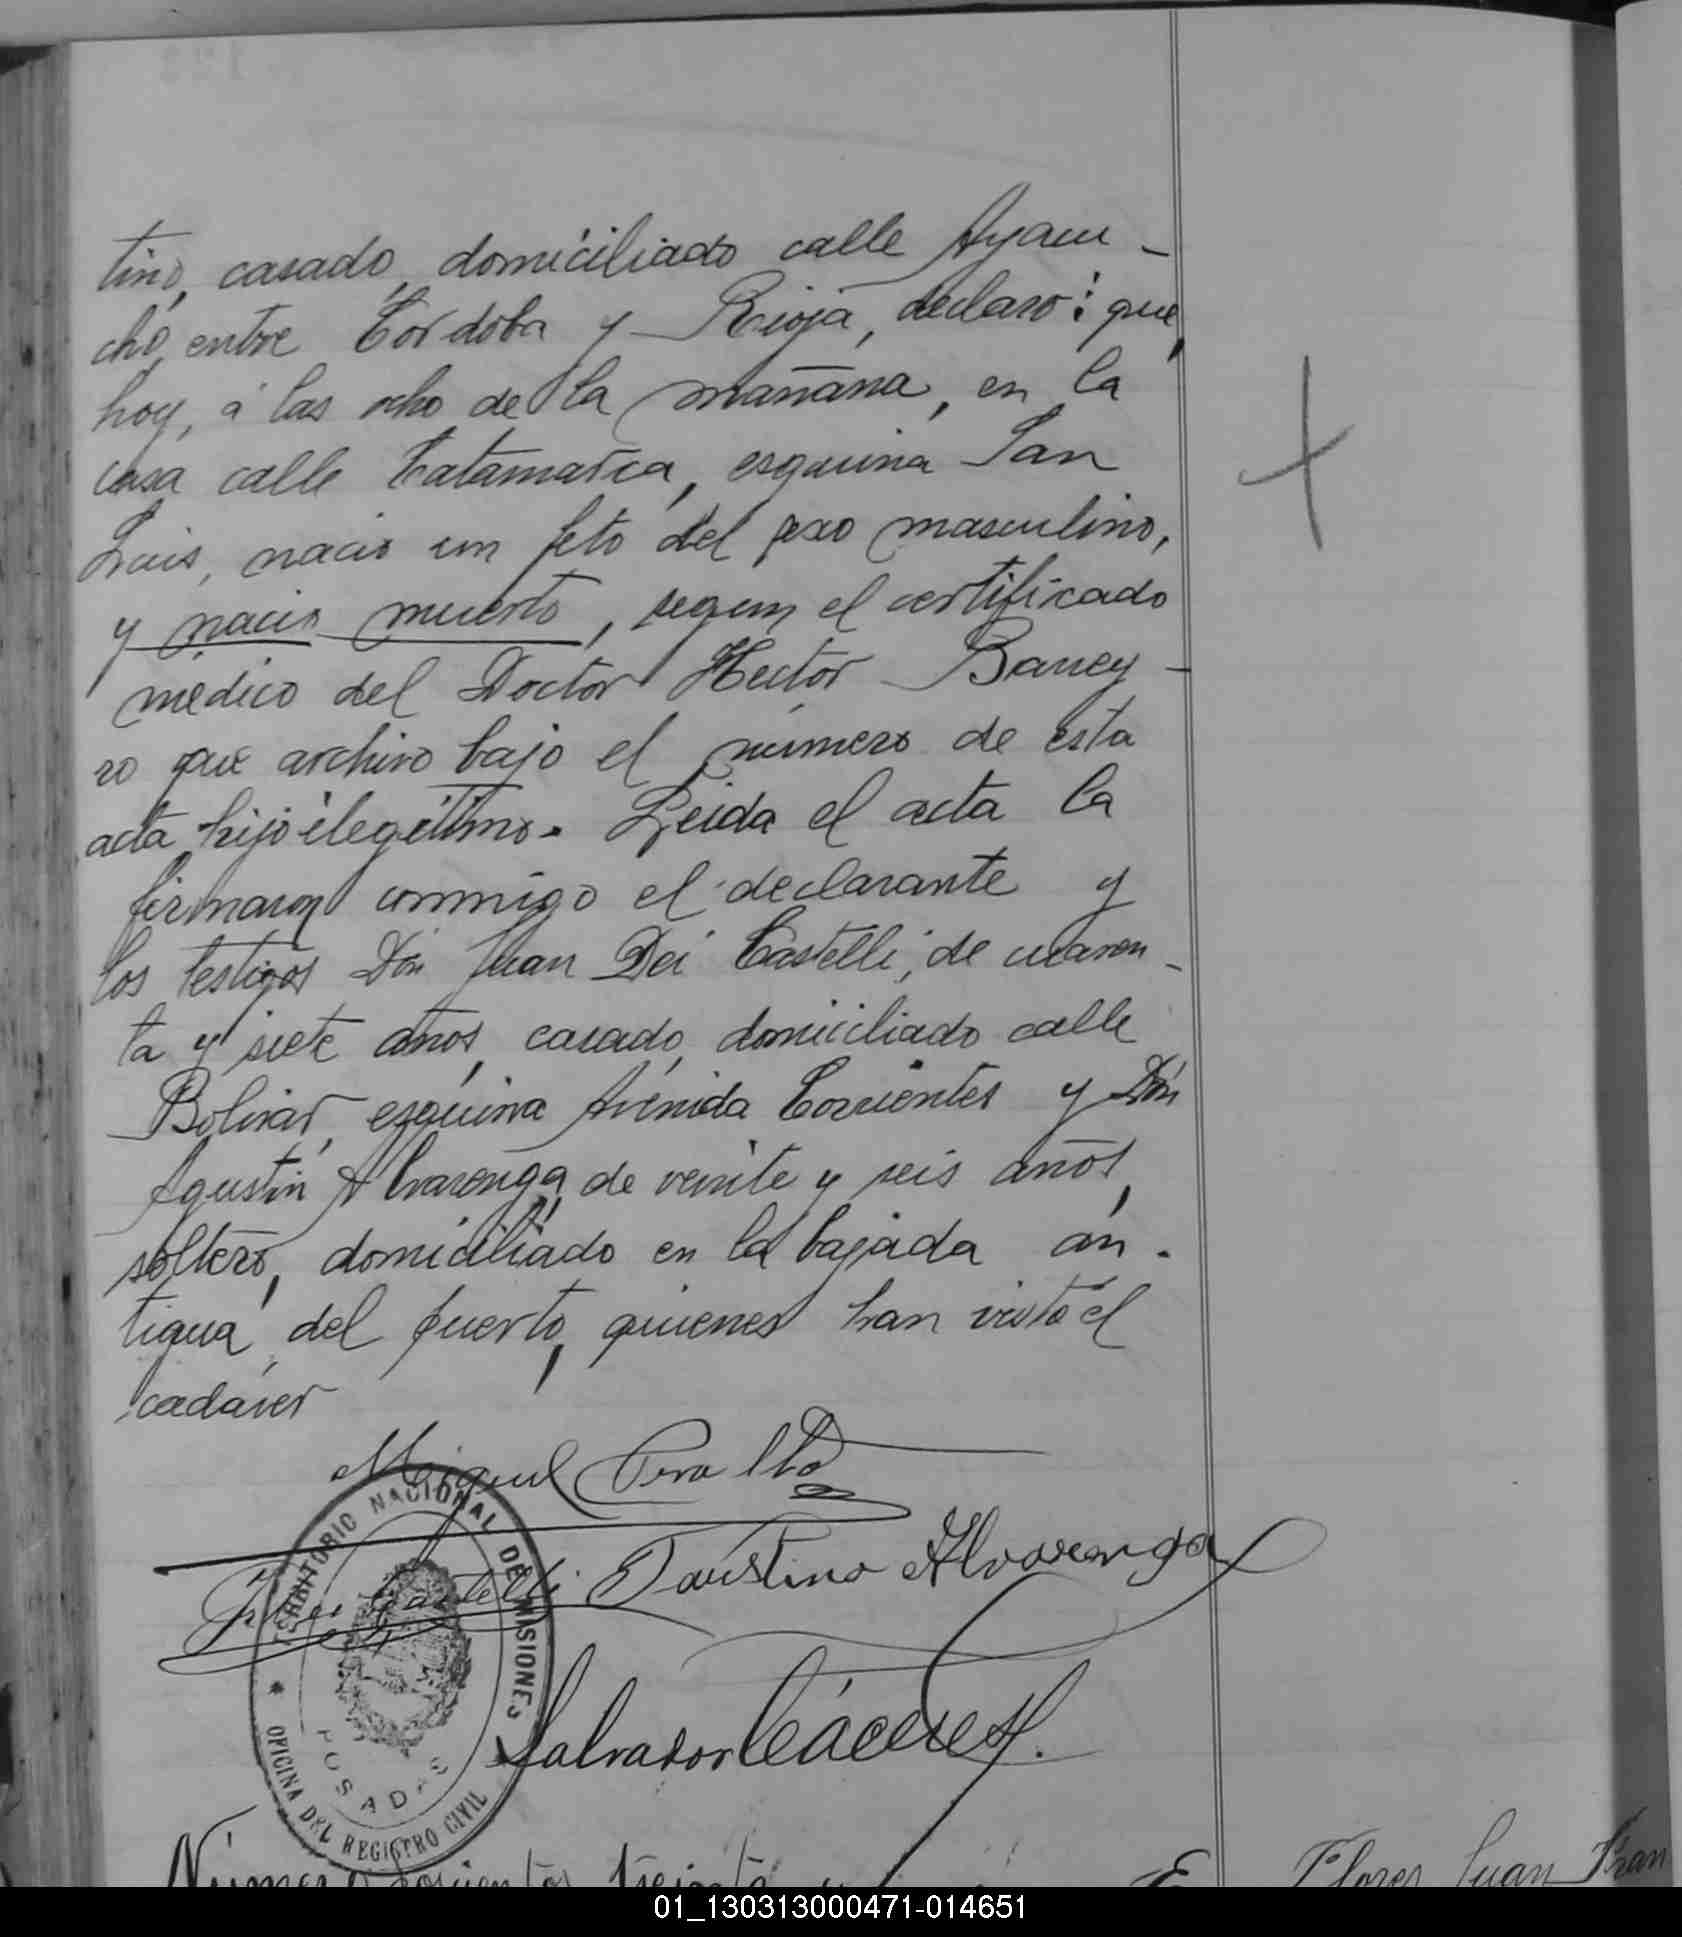 tino, casado, domiciliado calle Ayacu-
cho, entre Córdoba y Rioja, declaro: que,
hoy, á las ocho de la mañana, en la
casa calle Catamarca, esquina San
Luis, nacio un feto del sexo masculino,
y nacio muerto, segun el certificado
médico del Doctor Hector Barrey-
ro que archivo bajo el numero de esta
acta hijo ilegítimo. Leida el acta la
firmaron conmigo el declarante y
los testigos Don Juan Dei Castelli, de cuaren-
ta y siete años, casado, domiciliado calle
Bolivar, esquina Avenida Corrientes y Don
Agustin Alvarenga, de veinte y seis años,
soltero, domiciliado en la bajada an-
tigua, del puerto, quienes han visto el
cadáver
Miguel Peralta
Dei Castelli Faustino Alvarenga
TERRITORIO NACIONAL DE MISIONES
OFICINA DEL REGISTRO CIVIL
POSADAS
Salvador Cáceres H.
Número treinta
Flores Juan Fran
01_130313000471-014651